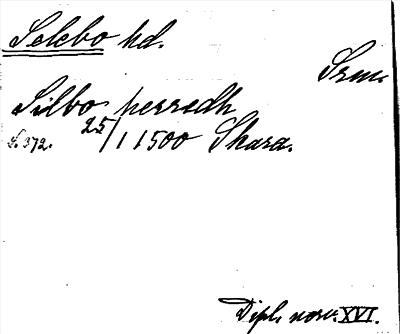 Selebo hd.
Srm.
Silbo herredh
S. 372. 25/1 1500 Skara.
Dipl. norv. XVI.